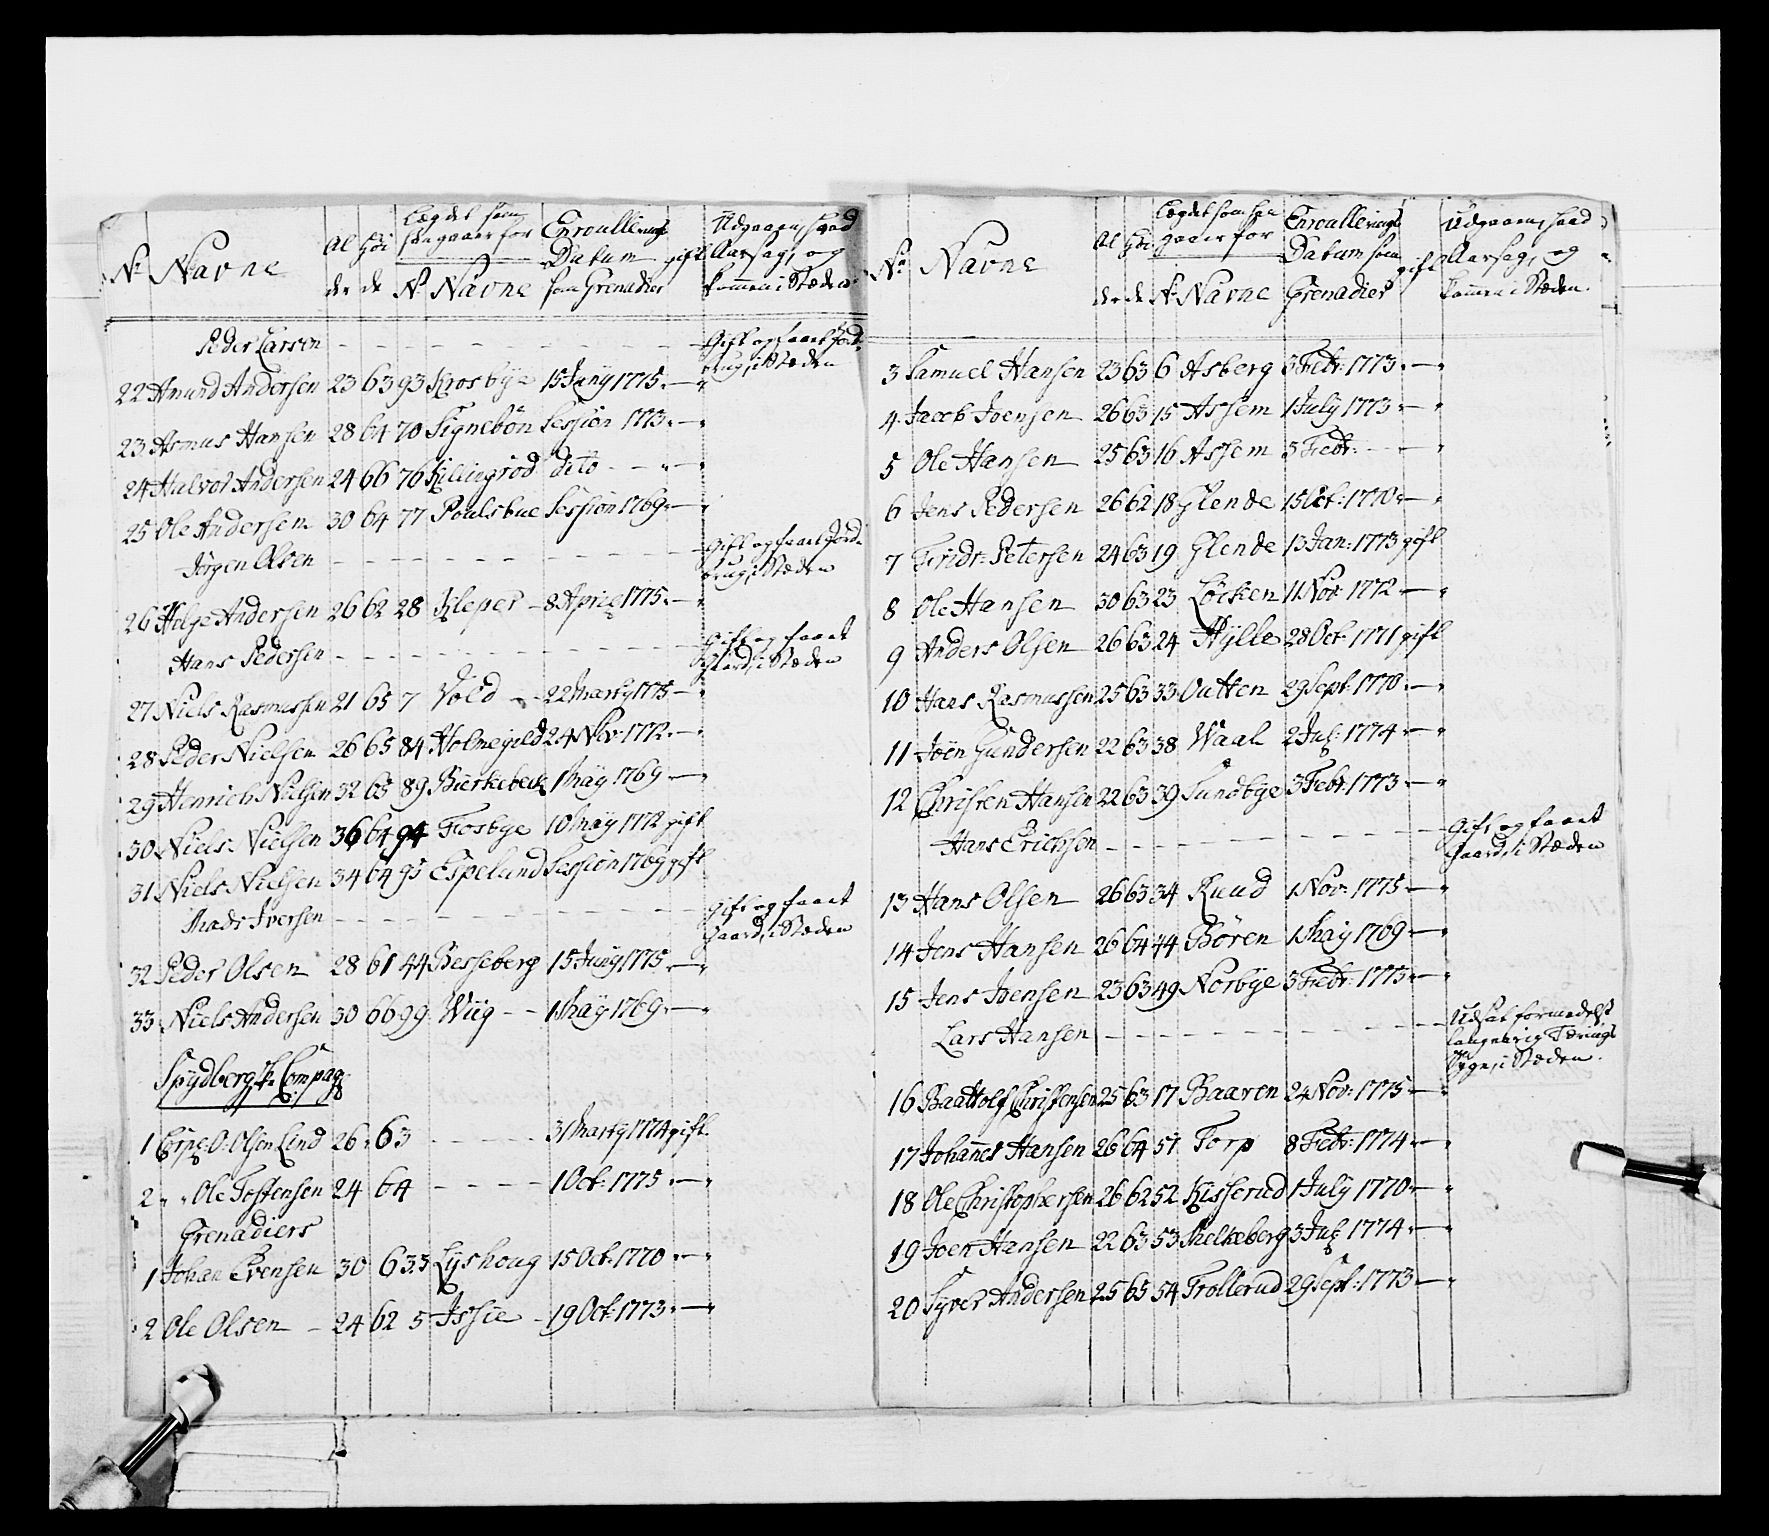 No Navne Alder Höide Lægdet som han gaaer for No Navne Enroullerings Datum som Grenadier gift Udgaaen, hvad Aarsag, og kommen i Stæden
Peder Larsen - - - Gift og faaet Jordbrug, i Stæden
22 Amund Andersen 23 63 93 Krosbÿe 15 Junÿ 1775. — "
23 Asmus Hansen 28 64 70 Tignebön Session 1773. — "
24 Halvor Andersen 24 66 76 Killingröd dito - - "
25 Ole Andersen 30 64 77 Poulsbue Session 1769. — "
Jörgen Olsen - - - Gift og faaet Jordbrug, i Stæden
26 Helge Andersen 26 62 28 Kleper - 8 April 1775. — "
Hans Pedersen - - - Gift og faaet Gaard, i Stæden
27 Niels Rasmussen 21 65 7 Vold - 22 Martÿ 1775 — "
28 Peder Nielsen 26 65 84 Holmegild 24 Nov: 1772. — "
29 Henrich Nielsen 32 65 89 Bürkebeck 1 Maÿ 1769 — "
30 Niels Nielsen 36 64 94 Fosbye 10 Maÿ 1772 gift
31 Niels Nielsen 34 64 95 Espelund Session 1769 gift
Mads Iversen - - - Gift og faaet Gaard, i Stæden
32 Peder Olsen 28 61 44 Besseberg 15 Junÿ 1775. — "
33 Niels Andersen 30 66 99 Wiig - - 1 Maÿ 1769. — "
Spÿdbergske Compag:
1 Corp: O: Olsen Lind 26 " 63 - - - 31 Martÿ 1774 gift
2 " " Ole Tostensen 24 64 - - - 1 Oct: 1775. — "
Grenadiers
1 Johan Evensen 30 63 3 Lÿshoug 15 Oct: 1770 — "
2 Ole Olsen - 24 62 5 Issie - 19 Oct: 1773. — "
No Navne Alder Höide Lægdet som han gaaer for No Navne Enroullerings Datum som Grenadier gift Udgaaen, hvad Aarsag, og kommen i Stæden.
3 Samuel Hansen 23 63 6 Asberg 3 Febr: 1773. — "
4 Jacob Joensen 26 63 15 Assem 1 Julÿ 1773 — "
5 Ole Hansen 25 63 16 Assem 3 Febr: - - "
6 Jens Pedersen 26 62 18 Glende 15 Oct: 1770. — "
7 Fridr: Petersen 24 63 19 Glende 13 Jan: 1773 gift
8 Ole Hansen 30 63 23 Löcken 11 Nov: 1772 — "
9 Anders Olsen 26 63 24 Hÿlle 28 Oct: 1771 gift
10 Hans Rasmussen 25 63 33 Outten 29 Sept: 1770. — "
11 Joen Gundersen 22 63 38 Waal 2 Jul: 1774 — "
12 Christen Hansen 22 63 39 Sundbye 3 Febr: 1773 — "
Hans Erichsen - - - Gift og faaet Gaard, i Stæden
13 Hans Olsen 26 63 34 Ruud 1 Nov: 1775 — "
14 Jens Hansen 26 64 44 Bören 1 Maÿ 1769 — "
15 Jens Joensen 23 63 49 Norbÿe 3 Febr: 1773. — "
Lars Hansen - - - Udsat formedelst langvarig Tærings Syge, i Stæden.
16 Baattolf Christensen 25 63 17 Baaren 24 Nov: 1775 — "
17 Johannes Hansen 26 64 51 Torp 8 Febr: 1774 — "
18 Ole Christophersen 26 62 52 Kisserud 1 Julÿ 1770 — "
19 Joen Hansen 22 63 53 Mælkeberg 3 Jul: 1774 — "
20 Siver Andersen 25 65 54 Trollerud 29 Sept: 1773 — "